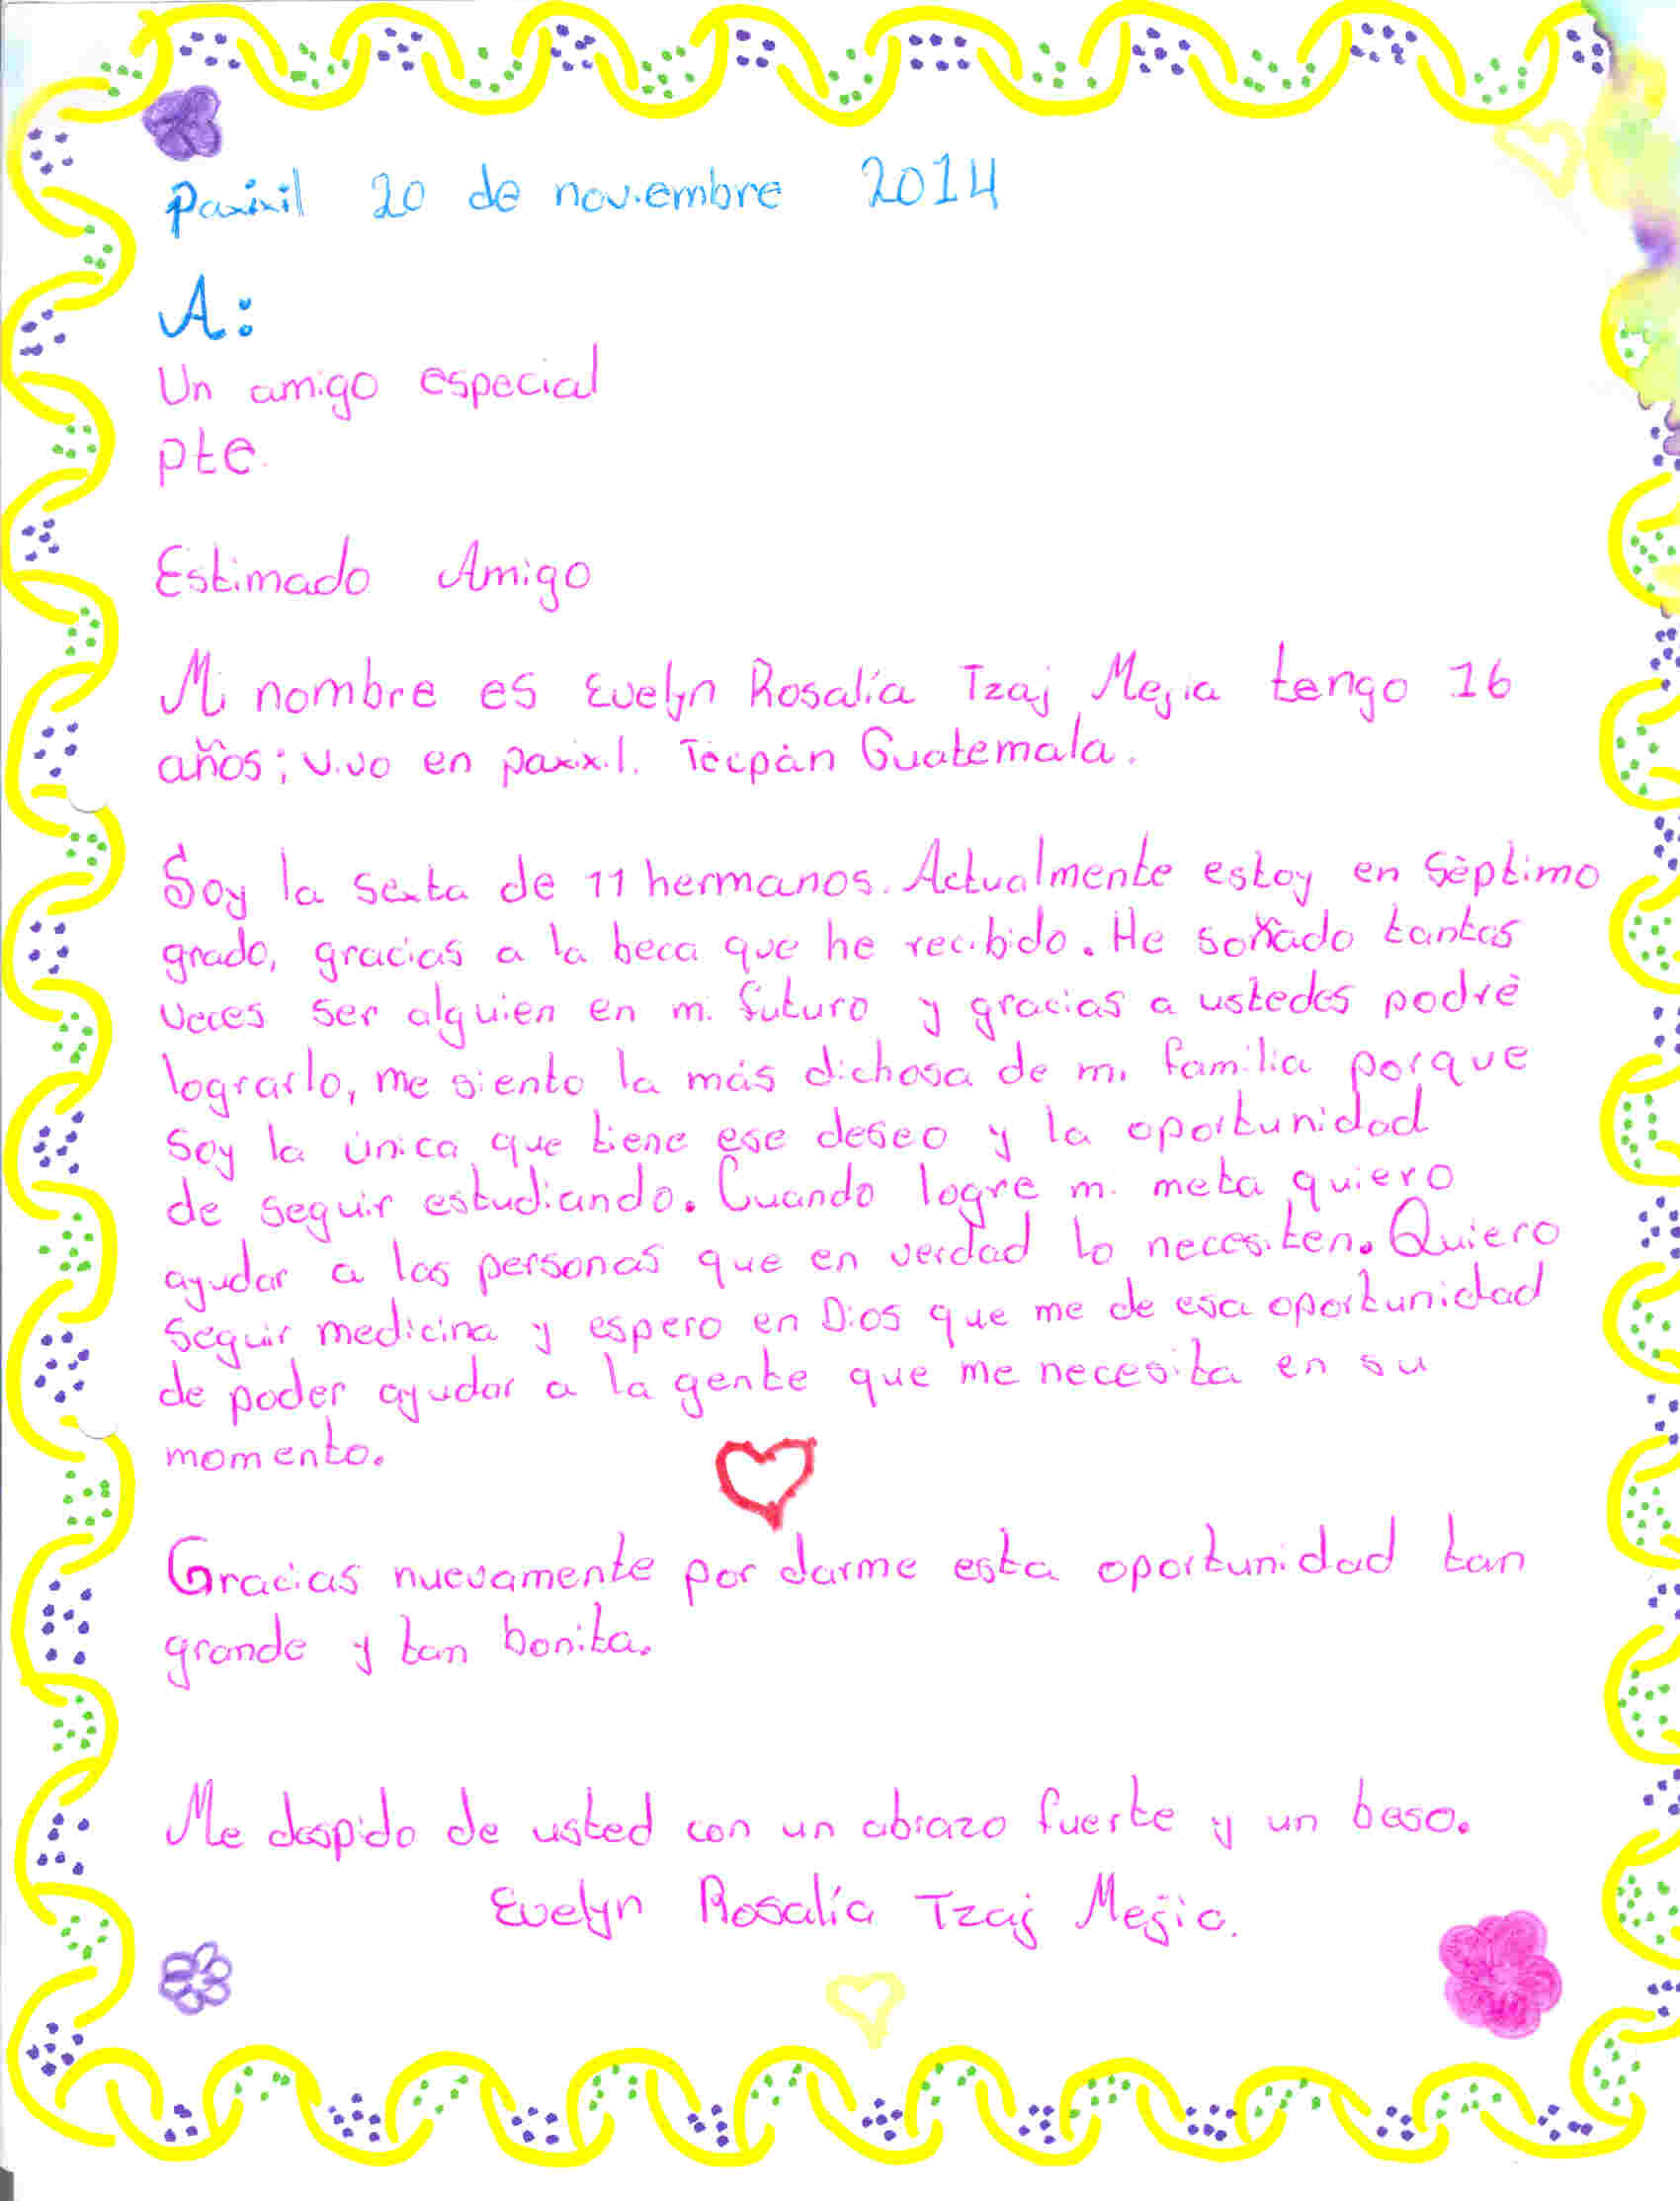 Paxixil 20 de noviembre 2014
A:
Un amigo especial
pte.
Estimado Amigo
Mi nombre es Evelyn Rosalía Tzaj Mejia tengo 16
años; vivo en paxixil. Tecpàn Guatemala.
Soy la sexta de 11 hermanos. Actualmente estoy en Sèptimo
grado, gracias a la beca que he recibido. He soñado tantas
veces ser alguien en mi futuro y gracias a ustedes podrè
lograrlo, me siento la más dichosa de mi familia porque
soy la ùnica que tiene ese deseo y la oportunidad
de seguir estudiando. Cuando logre mi meta quiero
ayudar a las personas que en verdad lo necesiten. Quiero
seguir medicina y espero en Dios que me de esa oportunidad
de poder ayudar a la gente que me necesita en su
momento.
Gracias nuevamente por darme esta oportunidad tan
grande y tan bonita.
Me despido de usted con un abrazo fuerte y un beso.
Evelyn Rosalía Tzaj Mejia.